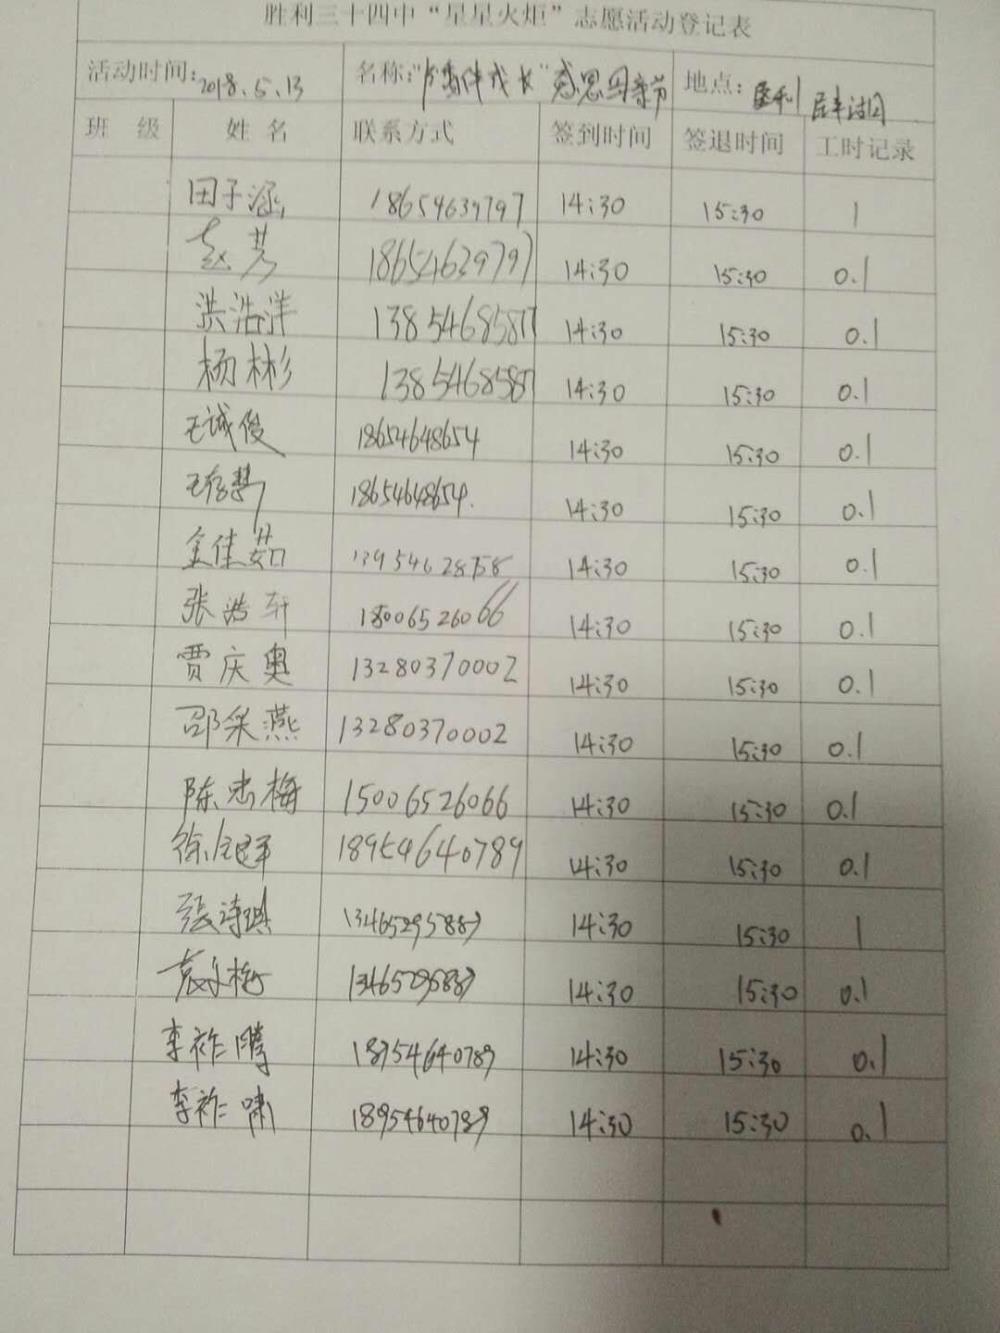 胜利三十四中“星星火炬”志愿活动登记表
活动时间：2018.5.13 名称：“书香伴成长”感恩母亲节 地点：垦利
班 级 姓 名 联系方式 签到时间 签退时间 工时记录
田子涵 18654639797 14:30 15:30 1
赵芳 18654639797 14:30 15:30 0.1
洪浩洋 13854685877 14:30 15:30 0.1
杨彬 1385468587 14:30 15:30 0.1
王诚俊 18654648654 14:30 15:30 0.1
18654648654. 14:30 15:30 0.1
金佳茹 14:30 15:30 0.1
张浩轩 18006526066 14:30 15:30 0.1
贾庆奥 13280370002 14:30 15:30 0.1
邵采燕 13280370002 14:30 15:30 0.1
陈忠梅 15006526066 14:30 15:30 0.1
18954640789 14:30 15:30 0.1
張诗琪 13465295887 14:30 15:30 1
袁永梅 13465295887 14:30 15:30 0.1
李祚腾 18954640789 14:30 15:30 0.1
李祚啸 18954640789 14:30 15:30 0.1